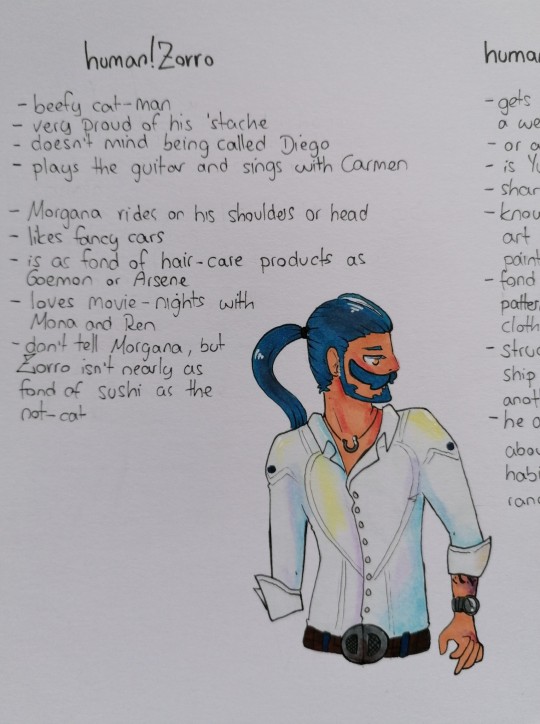 human!Zorro
- beefy cat-man
- very proud of his 'stache
- doesn't mind being called Diego
- plays the guitar and sings with Carmen
- Morgana rides on his shoulders or head
- likes fancy cars
- is as fond of hair-care products as
Goemon or Arsene
- loves movie-nights with
Mona and Ren
- don't tell Morgana, but
Zorro isn't nearly as
fond of sushi as the
not-cat
- gets
- or
- is
- know
art
- fond
cloth
ship
- he